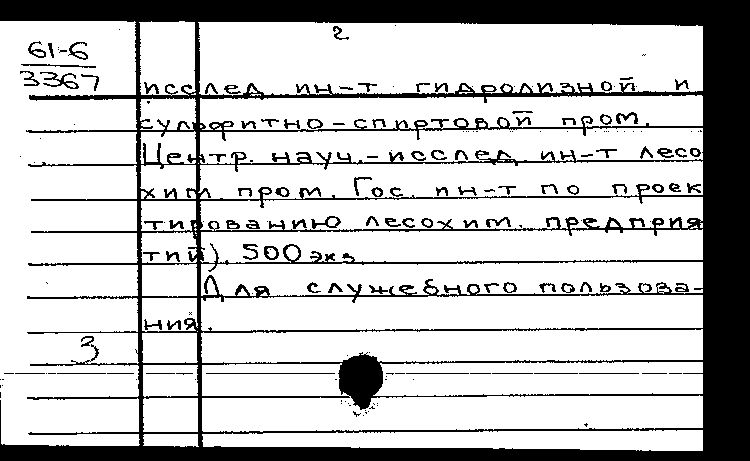 2
61-6
3367
исслед. ин-т гидролизной и
сульфитно-спиртовой пром.
Центр. науч.-исслед. ин-т лесо
хим. пром. Гос. ин-т по проек
тированию лесохим. предприя
тий). 500 экз.
Для служебного пользова-
ния.
3